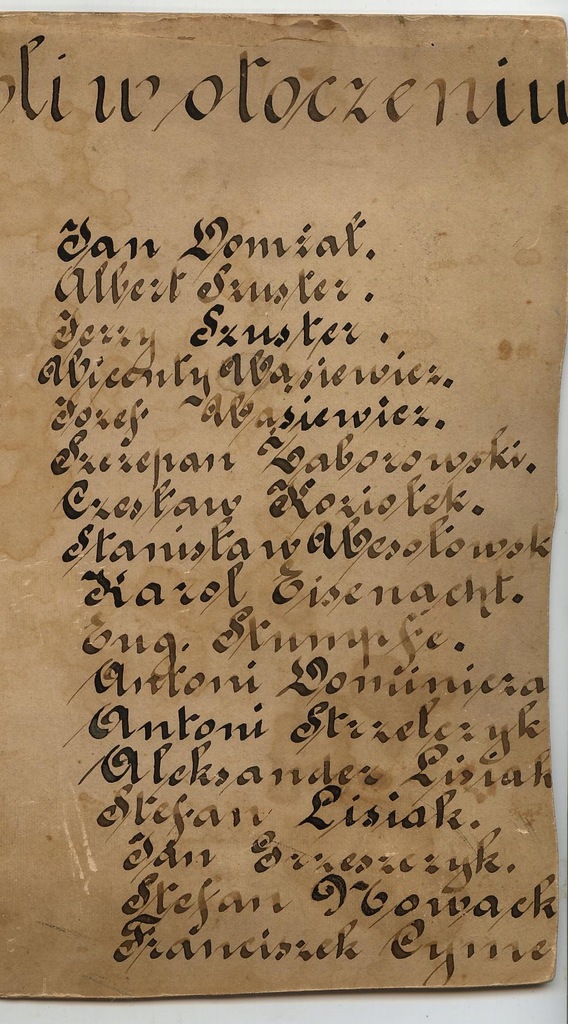 li w otoczeniu
Jan Domżał.
Albert Szuster.
Jerzy Szuster.
Wicenty Wąsiewicz.
Józef Wąsiewicz.
Szczepan Zaborowski.
Czesław Koziołek.
Stanisław Wesołowsk
Karol Eisenacht.
Eug. Stumpfe.
Antoni Dominicza
Antoni Strzelczyk
Aleksander Lisiak
Stefan Lisiak.
Jan Grzeszczyk.
Stefan Nowack
Franciszek Cyme